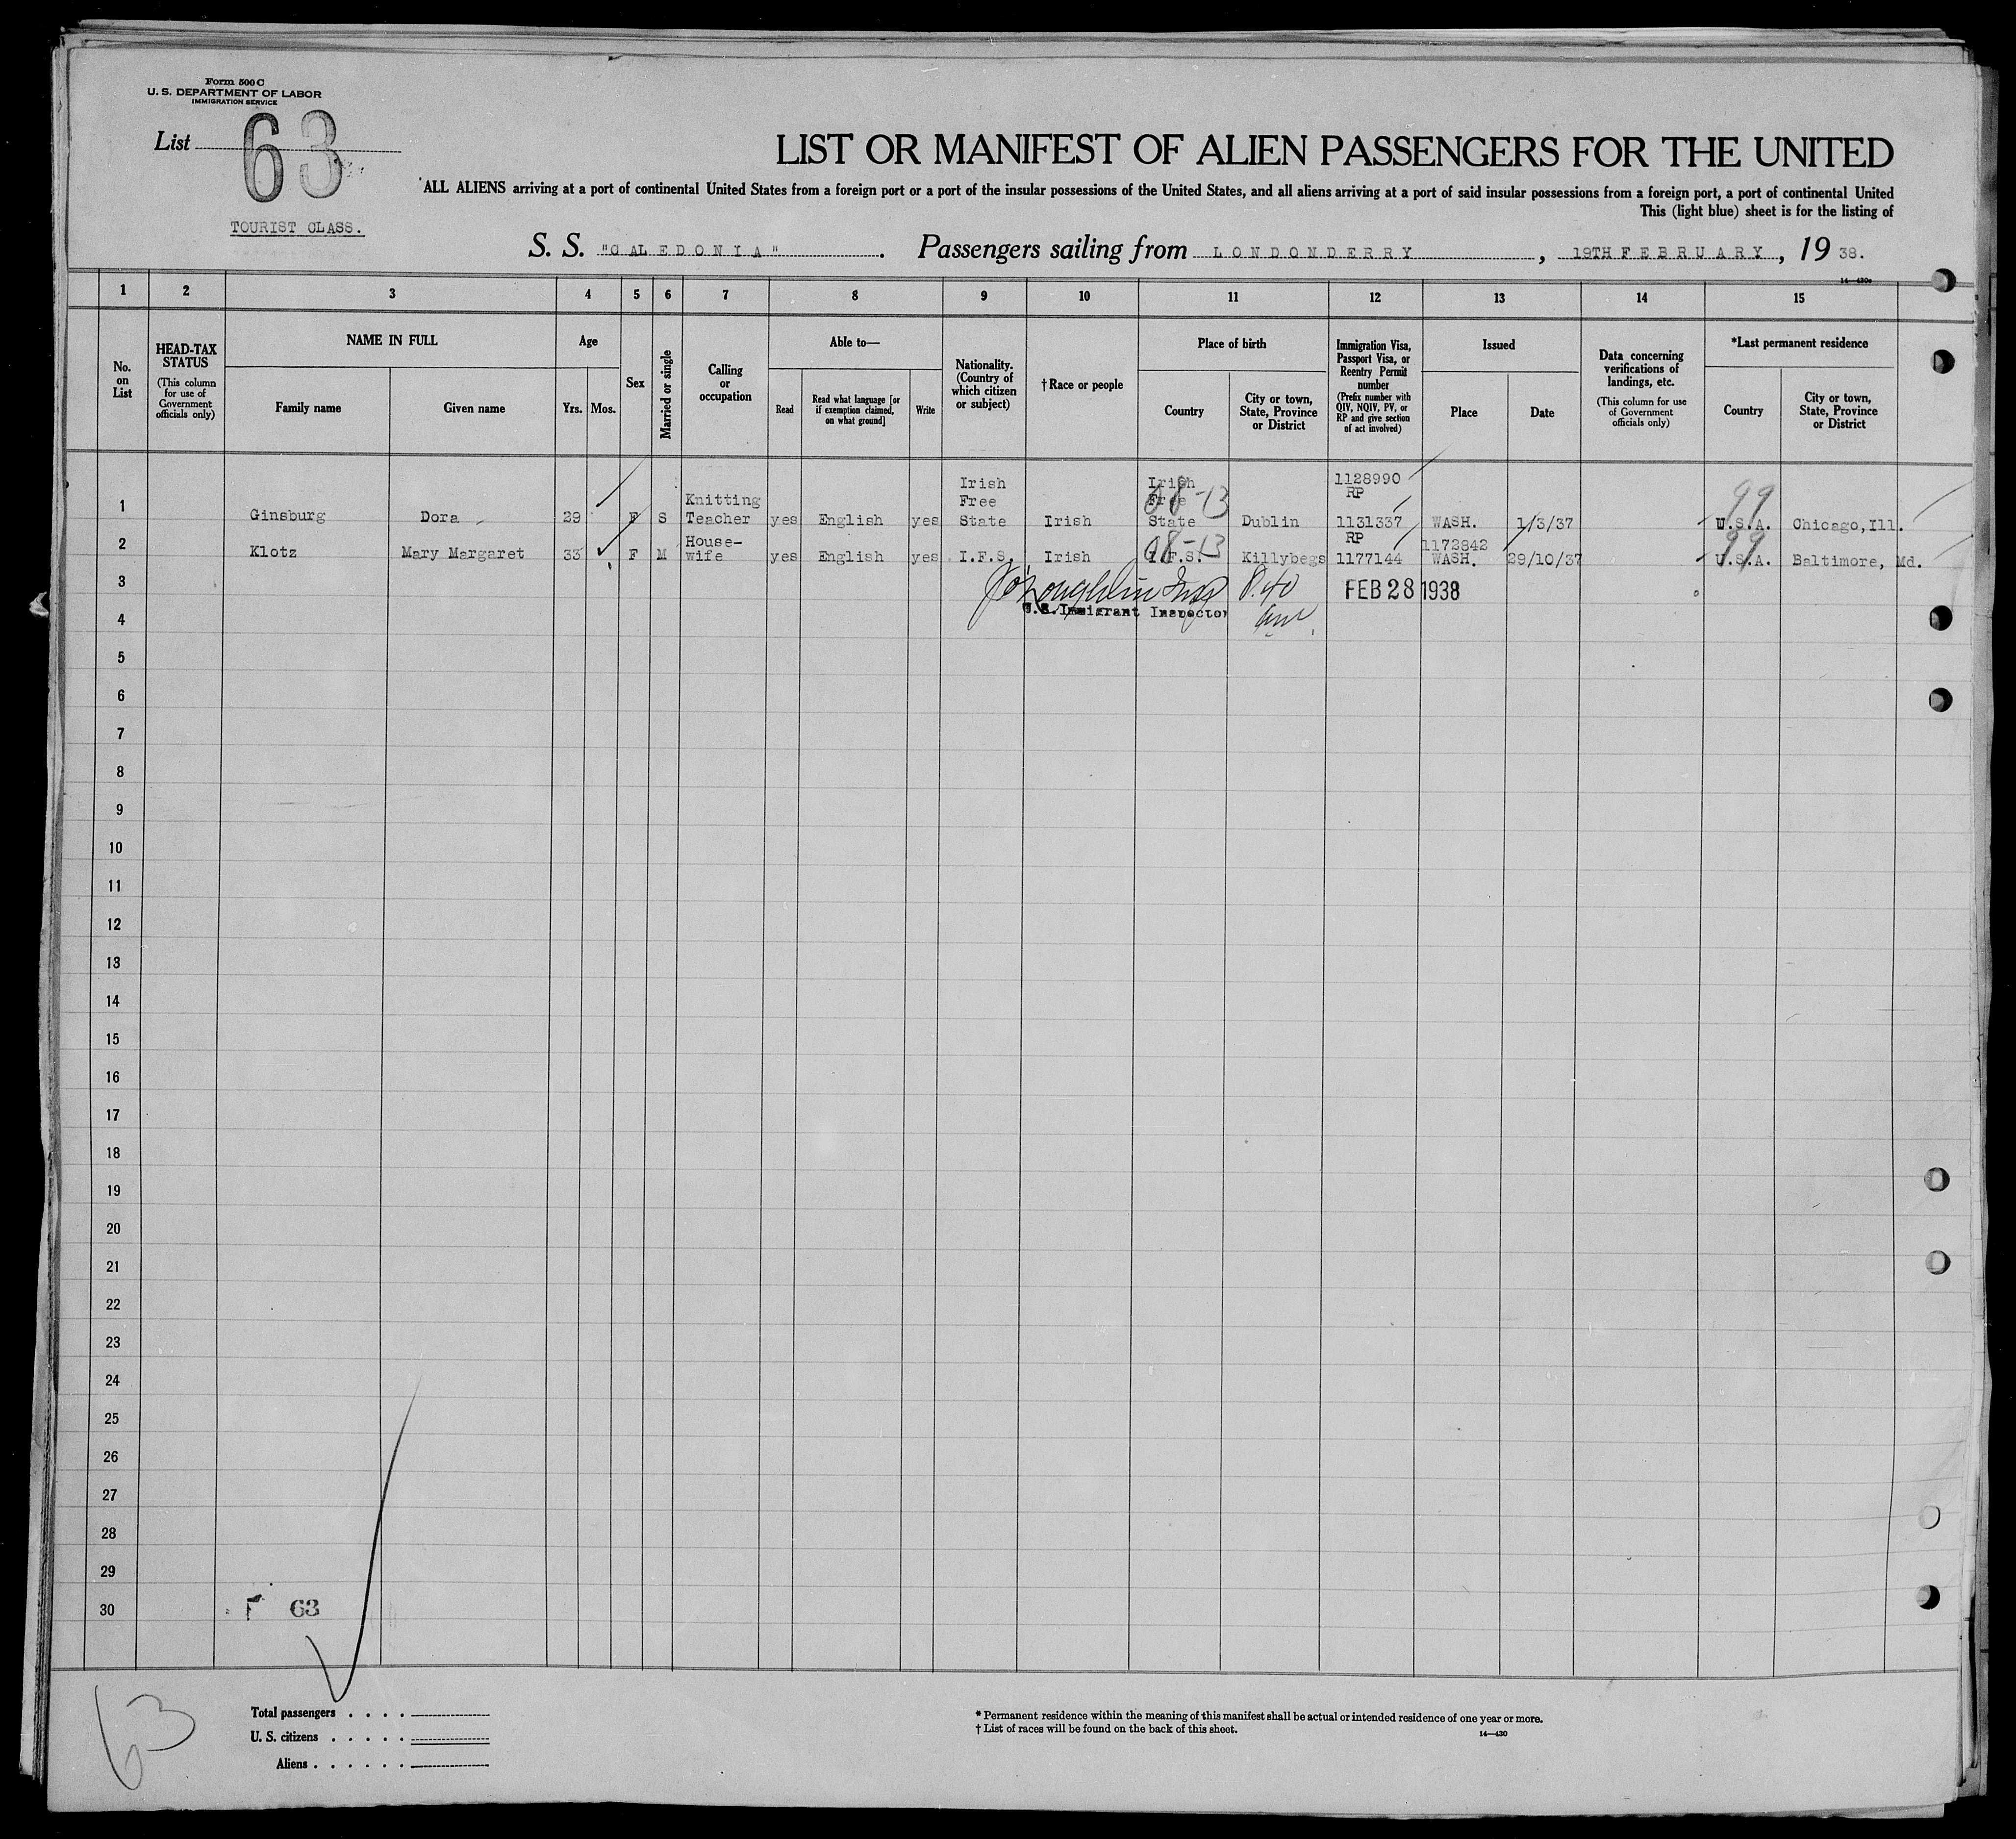 Form 500 C
U. S. DEPARTMENT OF LABOR
IMMIGRATION SERVICE
List 63
TOURIST CLASS.
LIST OR MANIFEST OF ALIEN PASSENGERS FOR THE UNITED
ALL ALIENS arriving at a port of continental United States from a foreign port or a port of the insular possessions of the United States, and all aliens arriving at a port of said insular possessions from a foreign port, a port of continental United
This (light blue) sheet is for the listing of
S. S. "CALEDONIA". Passengers sailing from LONDONDERRY, 19TH FEBRUARY, 19 38.
14—430a
1 2 3 4 5 6 7 8 9 10 11 12 13 14 15
No. on List
HEAD-TAX STATUS
(This column for use of Government officials only)
NAME IN FULL
Family name
Given name
Age
Yrs. Mos.
Sex
Married or single
Calling or occupation
Able to—
Read
Read what language [or if exemption claimed, on what ground]
Write
Nationality. (Country of which citizen or subject)
† Race or people
Place of birth
Country
City or town, State, Province or District
Immigration Visa, Passport Visa, or Reentry Permit number
(Prefix number with QIV, NQIV, PV, or RP and give section of act involved)
Issued
Place
Date
Data concerning verifications of landings, etc.
(This column for use of Government officials only)
*Last permanent residence
Country
City or town, State, Province or District
1 Ginsburg Dora 29 F S Knitting Teacher yes English yes Irish Free State Irish Irish Free State 08-13 Dublin 1128990 RP 1131337 WASH. 1/3/37 99 U.S.A. Chicago, Ill.
2 Klotz Mary Margaret 33 F M House-wife yes English yes I.F.S. Irish I.F.S. 08-13 Killybegs RP 1177144 1172842 WASH. 29/10/37 99 U.S.A. Baltimore, Md.
3 8.40 FEB 28 1938
4 U.S. Immigrant Inspector
5
6
7
8
9
10
11
12
13
14
15
16
17
18
19
20
21
22
23
24
25
26
27
28
29
30 F 63
63
Total passengers . . . .
U. S. citizens . . . . .
Aliens . . . . . .
* Permanent residence within the meaning of this manifest shall be actual or intended residence of one year or more.
† List of races will be found on the back of this sheet.
14—430